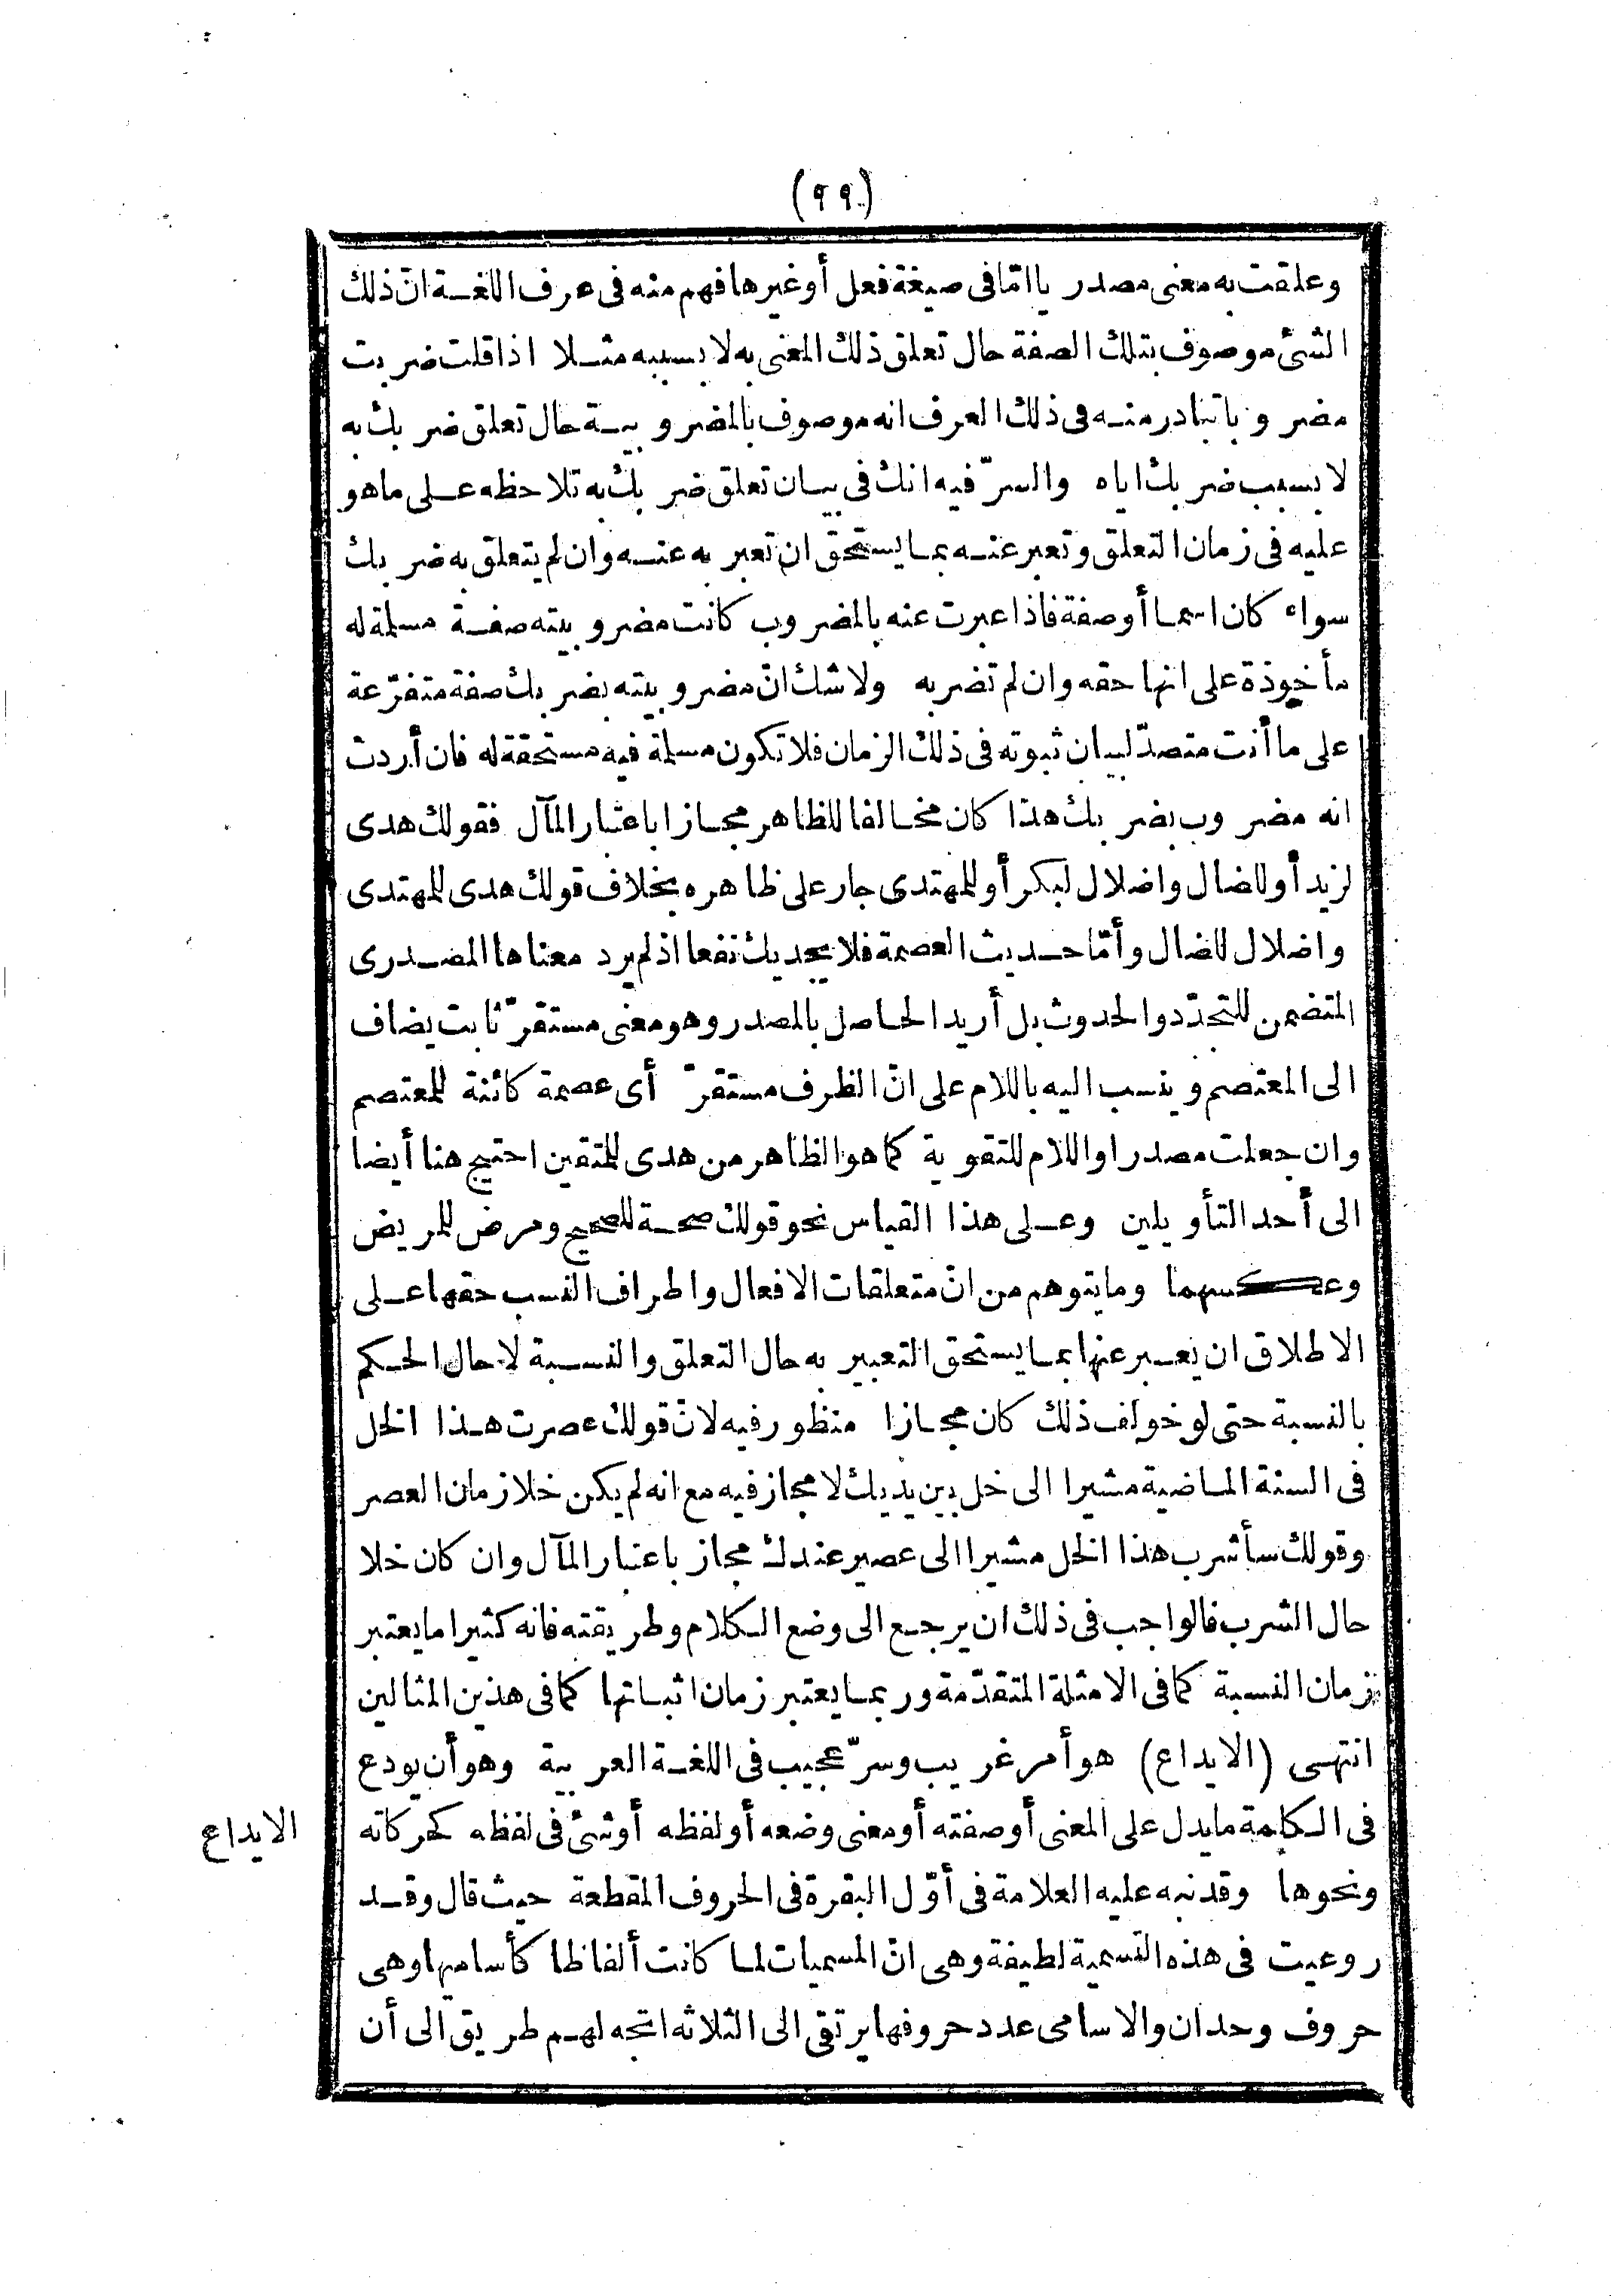 (٩٩)
وعلقت به معنى مصدر يا اتما فى صيغة فعل أو غيرها فهم منه فى عرف اللغة انّ ذلك
الشئ موصوف بتلك الصفة حال تعلق ذلك المعنى به لا بسببه مثلا اذا قلت ضربت
مضروبا تبادر منه فى ذلك العرف انه موصوف بالمضروبية حال تعلق ضربك به
لا بسبب ضربك اياه والسرّ فيه انك فى بيان تعلق ضربك به تلاحظه على ما هو
عليه فى زمان التعلق وتعبر عنه بما يستحق ان تعبر به عنه وان لم يتعلق به ضربك
سواء كان اسما أو صفة فاذا عبرت عنه بالمضروب كانت مضروبيته صفة مسلمة له
مأخوذة على انها حقه وان لم تضربه ولا شك انّ مضروبيته بضربك صفة متفرّعة
على ما أنت متصدّ لبيان ثبوته فى ذلك الزمان فلا تكون مسلمة فيه مستحقة له فان أردت
انه مضروب بضربك هذا كان مخالفا للظاهر مجازا باعتبار المآل فقولك هدى
لزيد أو للضال واضلال لبكر أو للمهتدى جار على ظاهره بخلاف قولك هدى للمهتدى
واضلال للضال وأمّا حديث العصمة فلا يجديك نفعا اذ لم يرد معناها المصدرى
المتضمن للتجدّد والحدوث بل أريد الحاصل بالمصدر وهو معنى مستقرّ ثابت يضاف
الى المعتصم وينسب اليه باللام على انّ الظرف مستقرّ أى عصمة كائنة للمعتصم
وان جعلت مصدرا واللام للتقوية كما هو الظاهر من هدى للمتقين احتيج هنا أيضا
الى أحد التأويلين وعلى هذا القياس نحو قولك صحة للصحيح ومرض للمريض
وعكسهما وما يتوهم من انّ متعلقات الافعال واطراف النسب حقها على
الاطلاق ان يعبر عنها بما يستحق التعبير به حال التعلق والنسبة لا حال الحكم
بالنسبة حتى لو خولف ذلك كان مجازا منظور فيه لانّ قولك عصرت هذا الخل
فى السنة الماضية مشيرا الى خل بين يديك لا مجاز فيه مع انه لم يكن خلا زمان العصر
وقولك سأشرب هذا الخل مشيرا الى عصير عندك مجاز باعتبار المآل وان كان خلا
حال الشرب فالواجب فى ذلك ان يرجع الى وضع الكلام وطريقته فانه كثيرا ما يعتبر
زمان النسبة كما فى الامثلة المتقدّمة وربما يعتبر زمان اثباتها كما فى هذين المثالين
انتهى (الايداع) هو أمر غريب وسرّ عجيب فى اللغة العربية وهو أن يودع
فى الكلمة ما يدل على المعنى أو صفته أو معنى وضعه أو لفظه أو شئ فى لفظه كحركاته
الايداع
ونحوها وقد نبه عليه العلامة فى أوّل البقرة فى الحروف المقطعة حيث قال وقد
روعيت فى هذه التسمية لطيفة وهى انّ المسميات لما كانت ألفاظا كأساميها وهى
حروف وحدان والاسامى عدد حروفها يرتقى الى الثلاثه اتجه لهم طريق الى أن